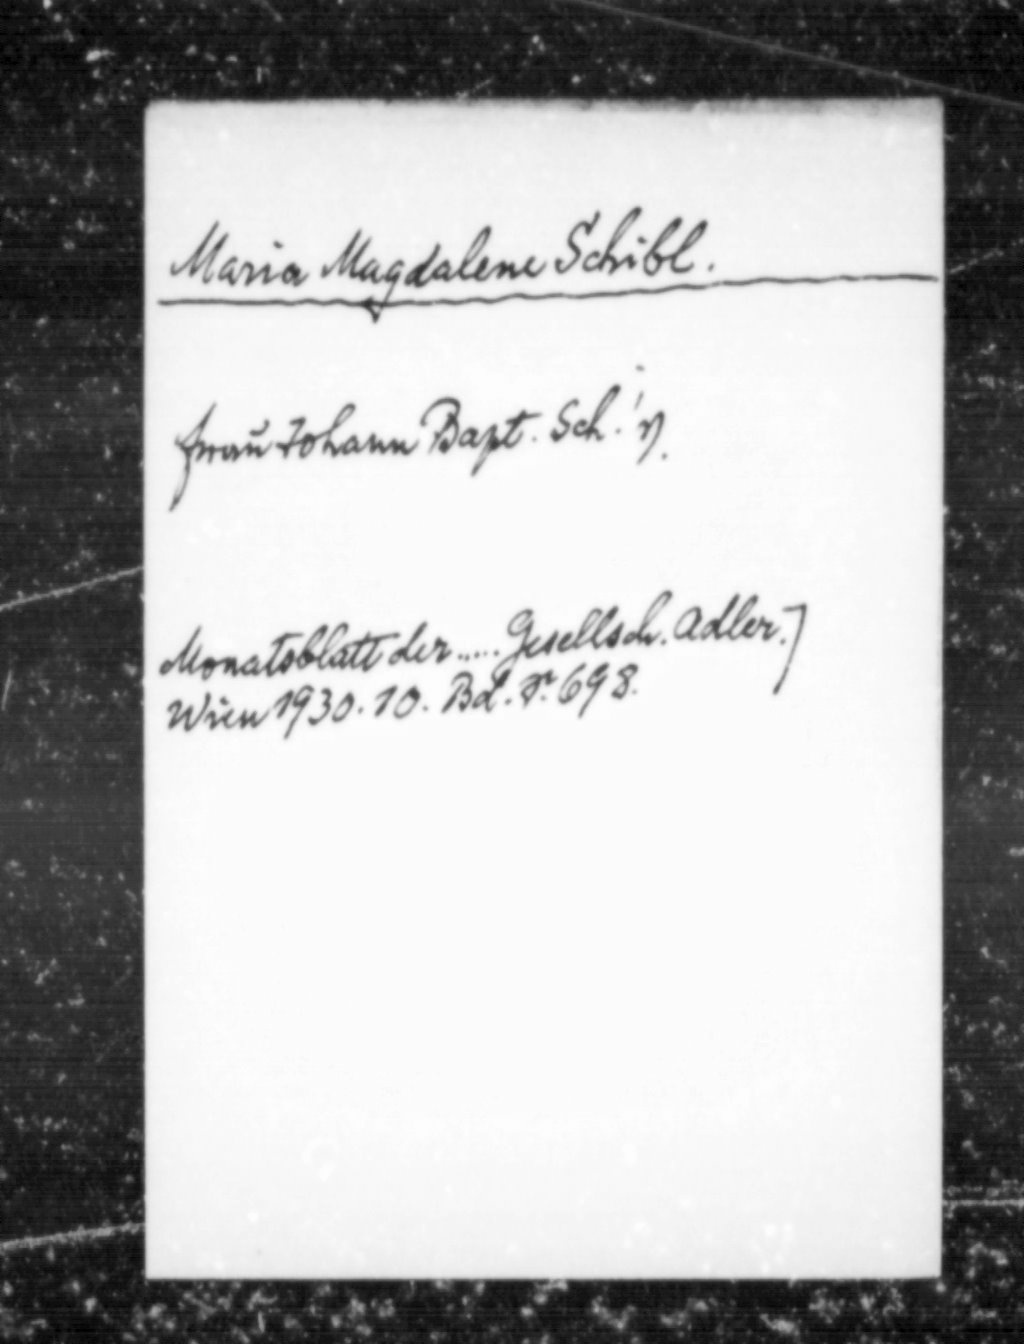 Maria Magdalene Schibl.
frau Johann Bapt. Sch.
Monatsblatt der ..... Gesellsch. Adler.
Wien 1930. 10. Bd. Nr. 698.